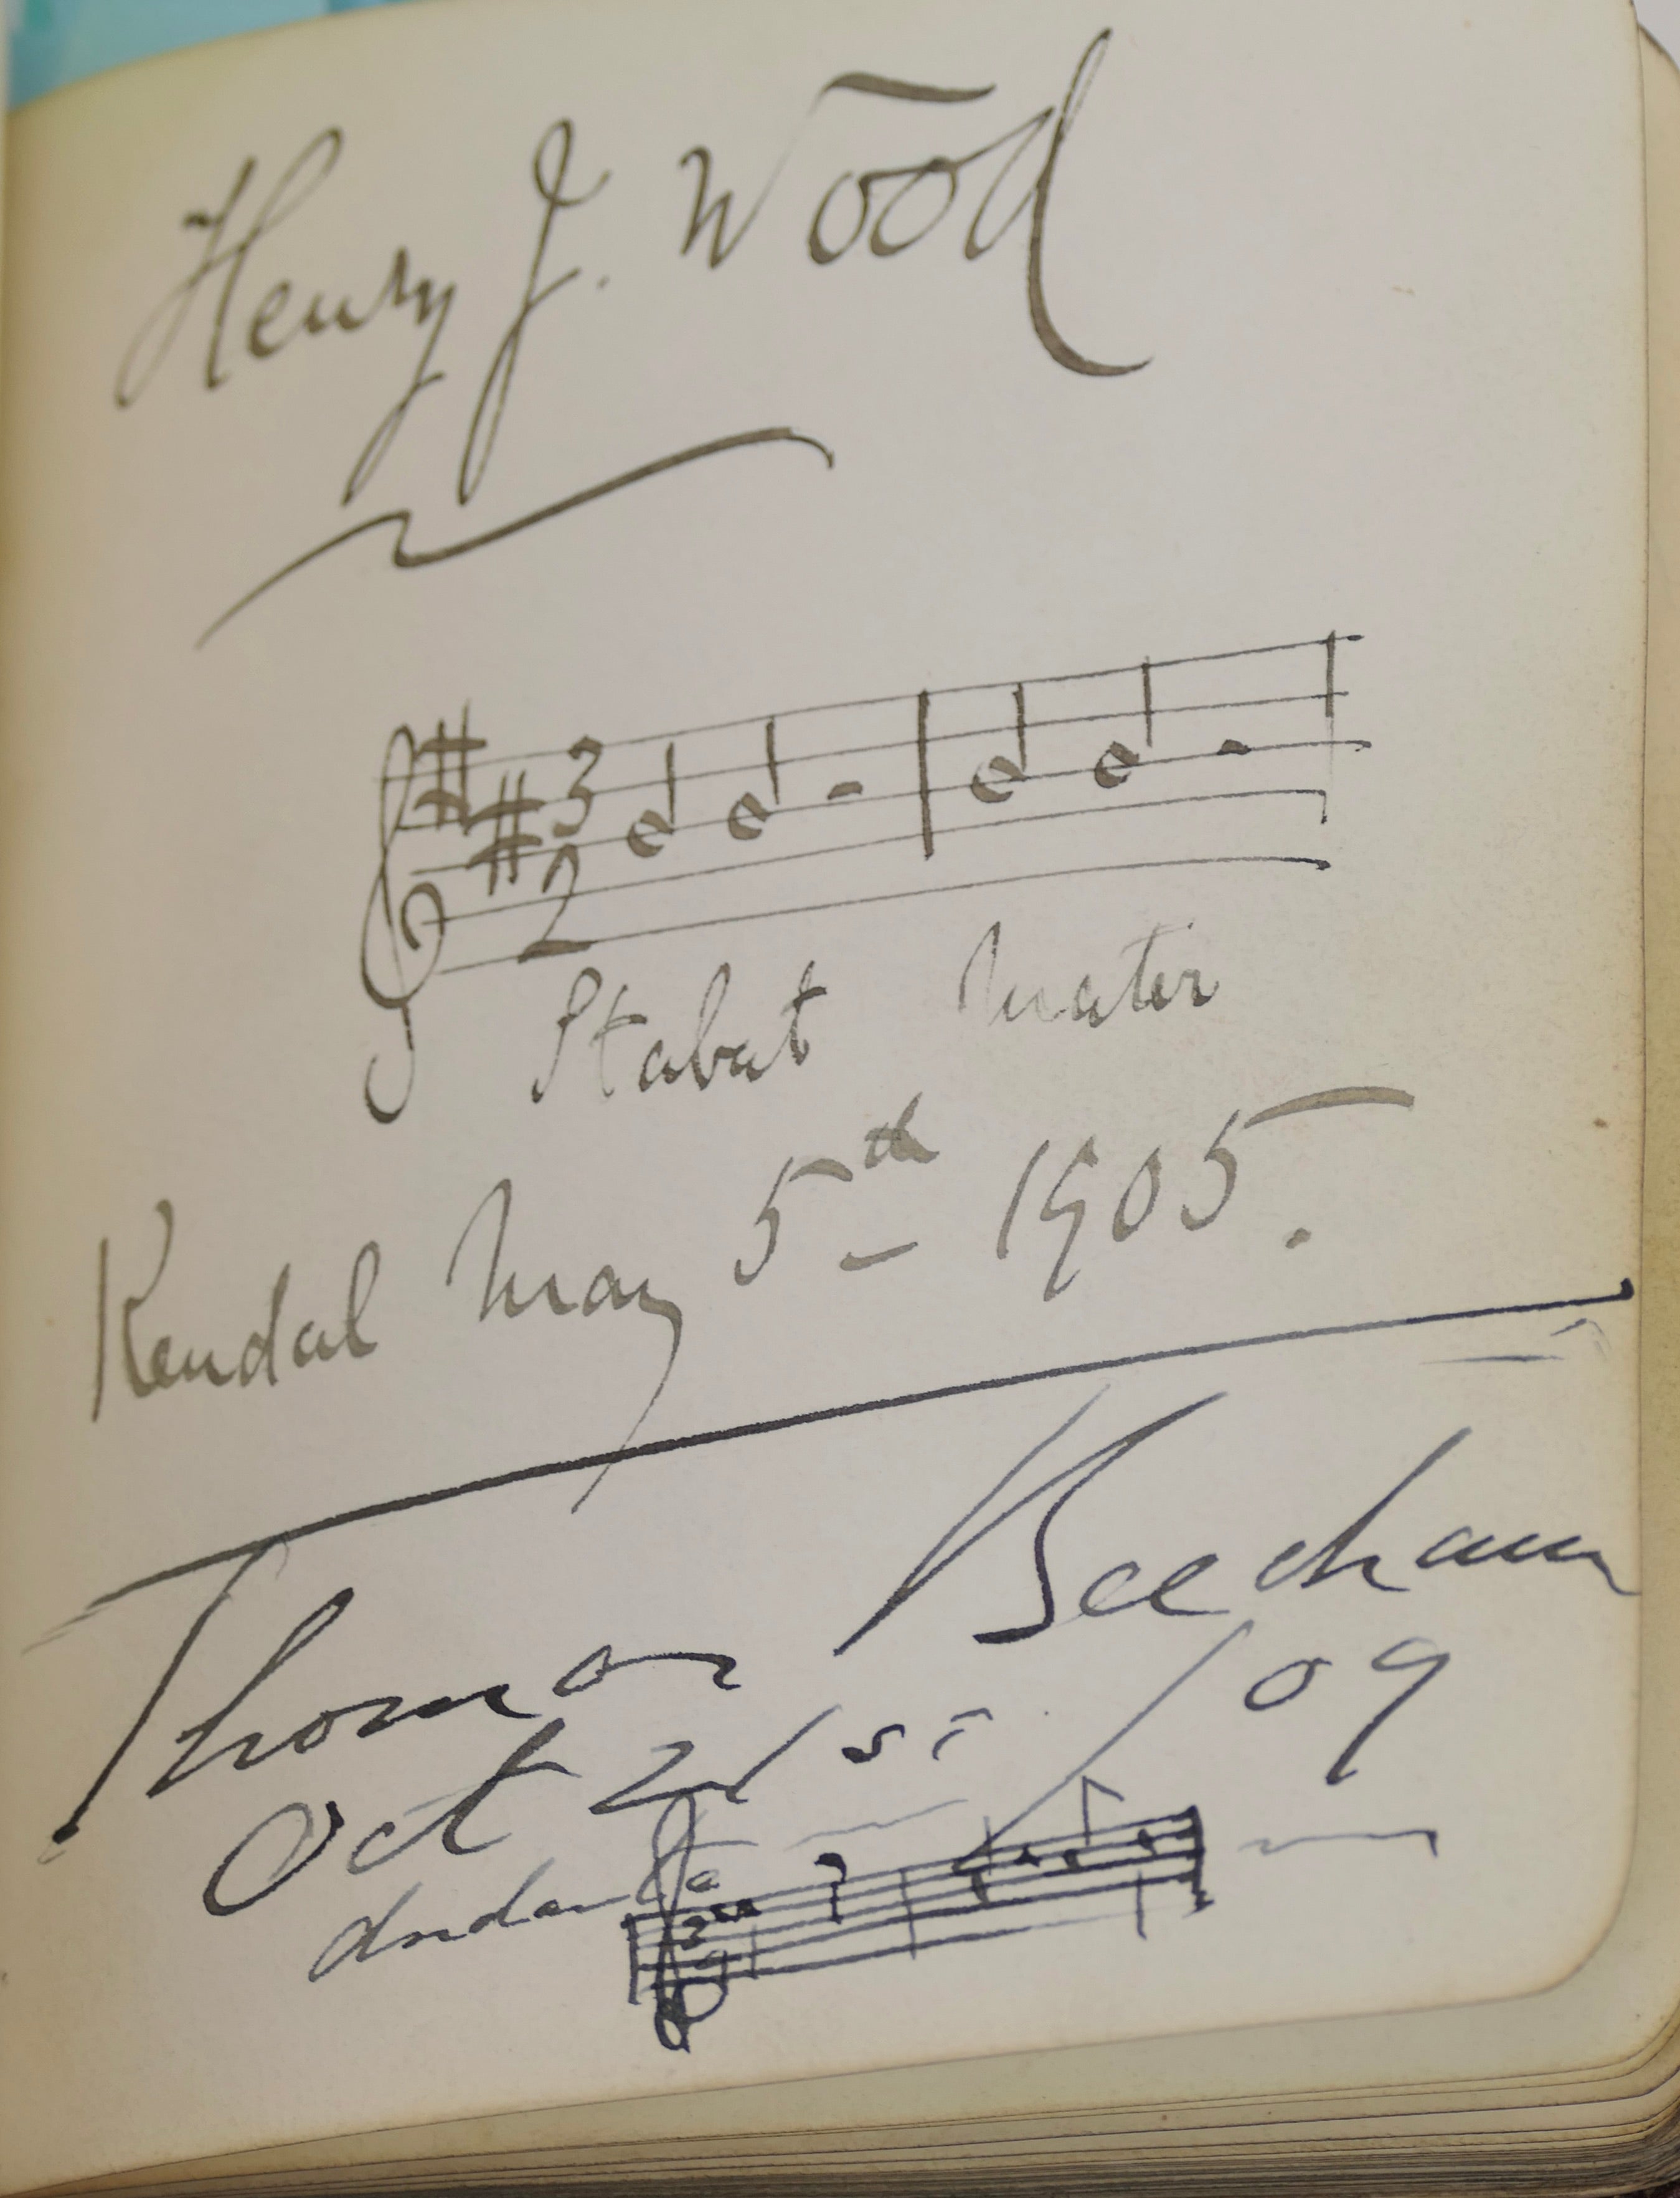 Henry J. Wood
3
2
Stabat Mater
Kendal May 5th 1905.
Thomas Beecham
Oct 21st /09
Andante